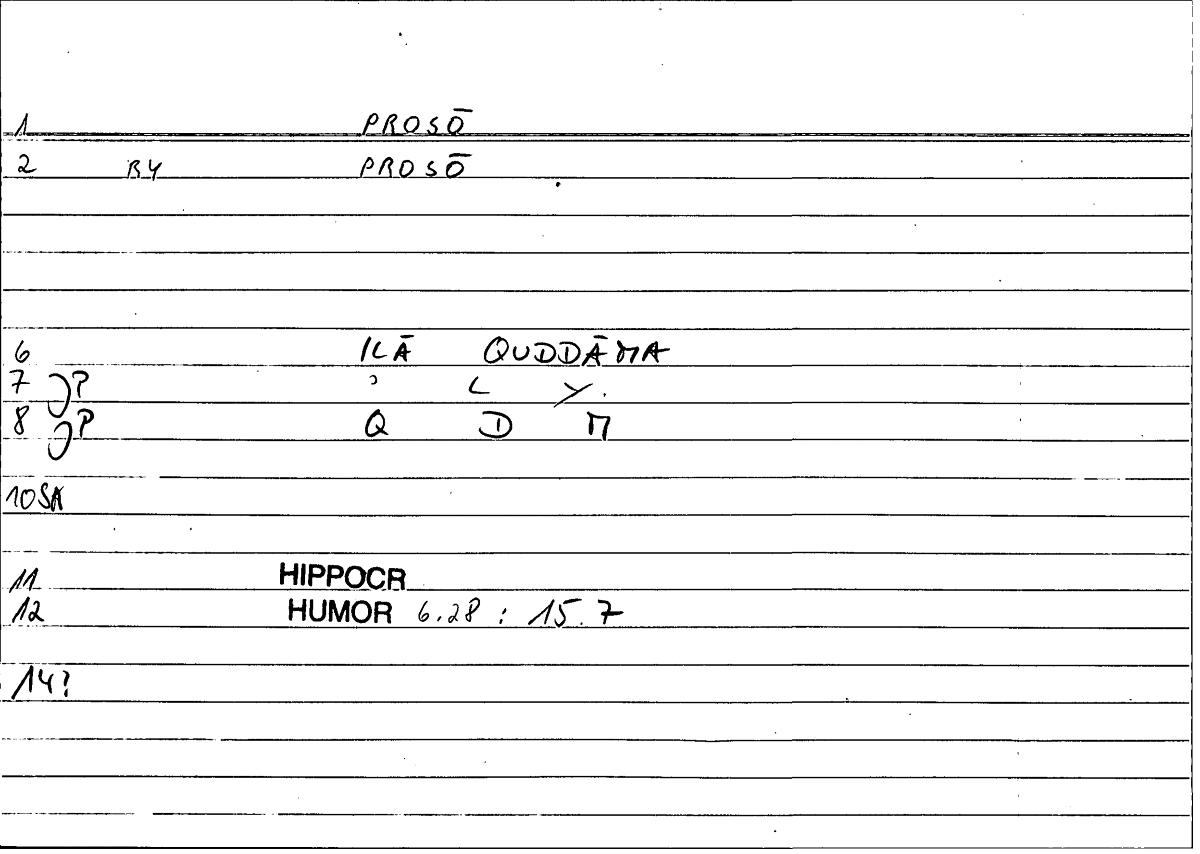 1 PROSŌ
2 BY PROSŌ
6 ILĀ QUDDĀMA
7 P ʾ L Y.
8 P Q D M
10 SA
11 HIPPOCR
12 HUMOR 6.28 : 15.7
14?